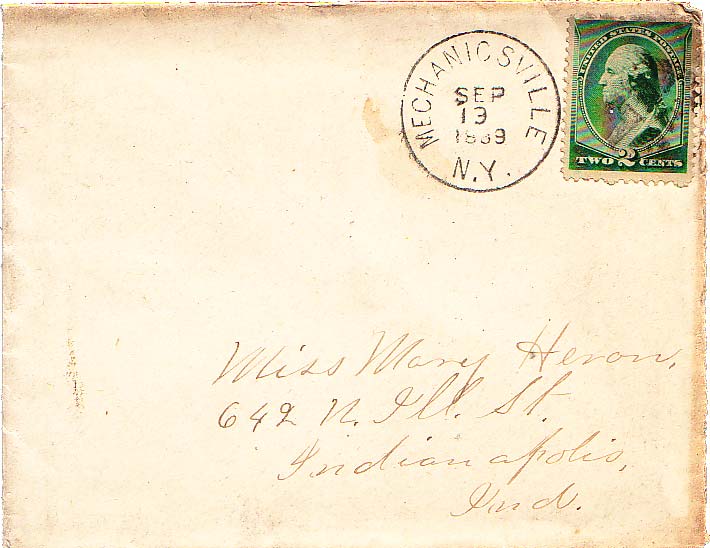 MECHANICSVILLE
SEP
13
1889
N.Y.
UNITED STATES POSTAGE
TWO 2 CENTS
Miss Mary Heron,
642 N. Ill. St.
Indianapolis,
Ind.